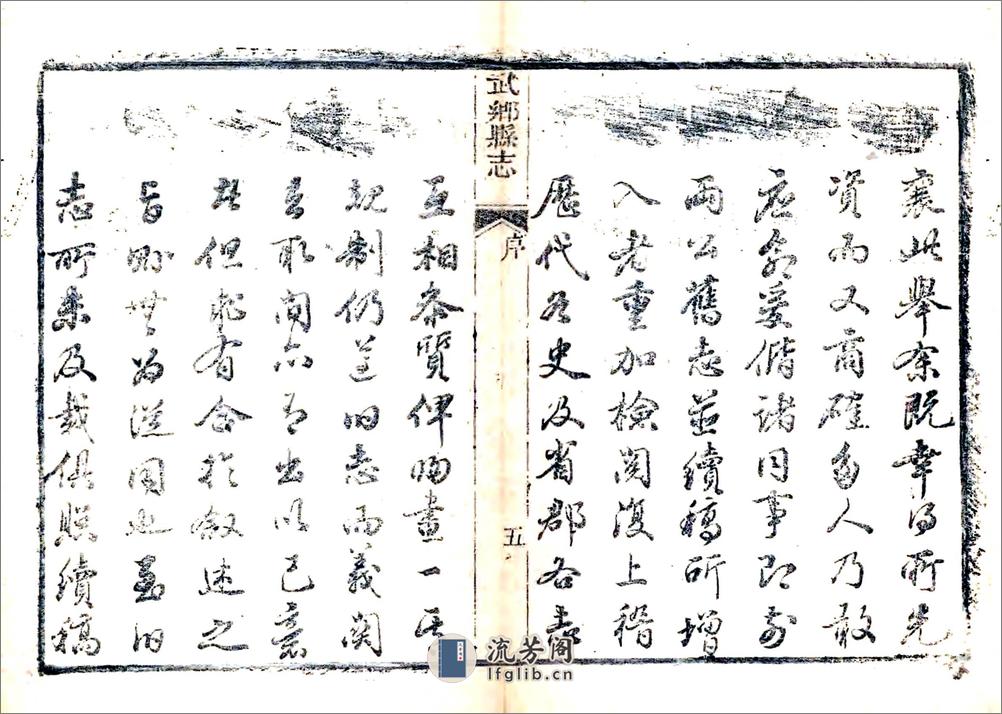 襄此舉余既幸得所先
資而又商確多人乃敢
应命爰偕諸同事即前
兩公舊志並續稿所增
入者重加檢閱復上稽
歷代各史及省郡各
武鄉縣志 序 五
互相參質俾歸畫一其
規制仍遵旧志而義関
去取間亦有出以己意
者但求有合於叙述之
旨則無為從同也至旧
志所未及載俱照續稿
流芳阁
lfglib.cn